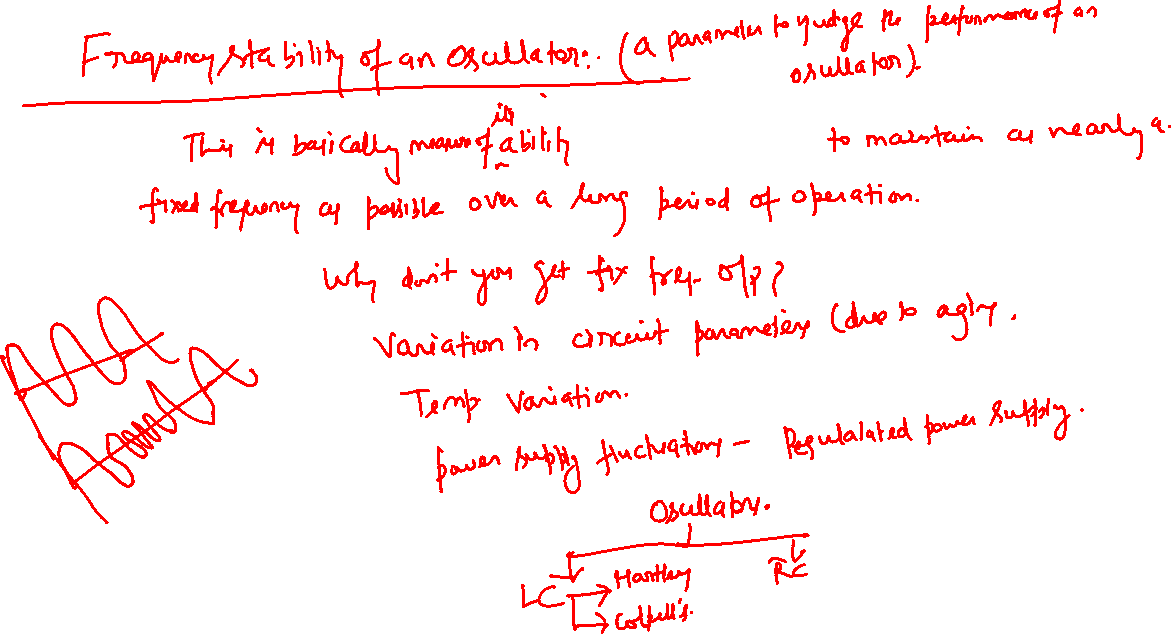 Frequency stability of an Oscillator:. (a parameter to judge the performance of an oscillator).
This is basically measure of its ability to maintain as nearly a
fixed frequency as possible over a long period of operation.
Why don't you get fix freq. o/p?
Variation in circuit parameters (due to aging,
Temp variation.
power supply fluctuations - Regulalated power supply.
Oscillators.
LC
Hartley
Colpitt's.
RC